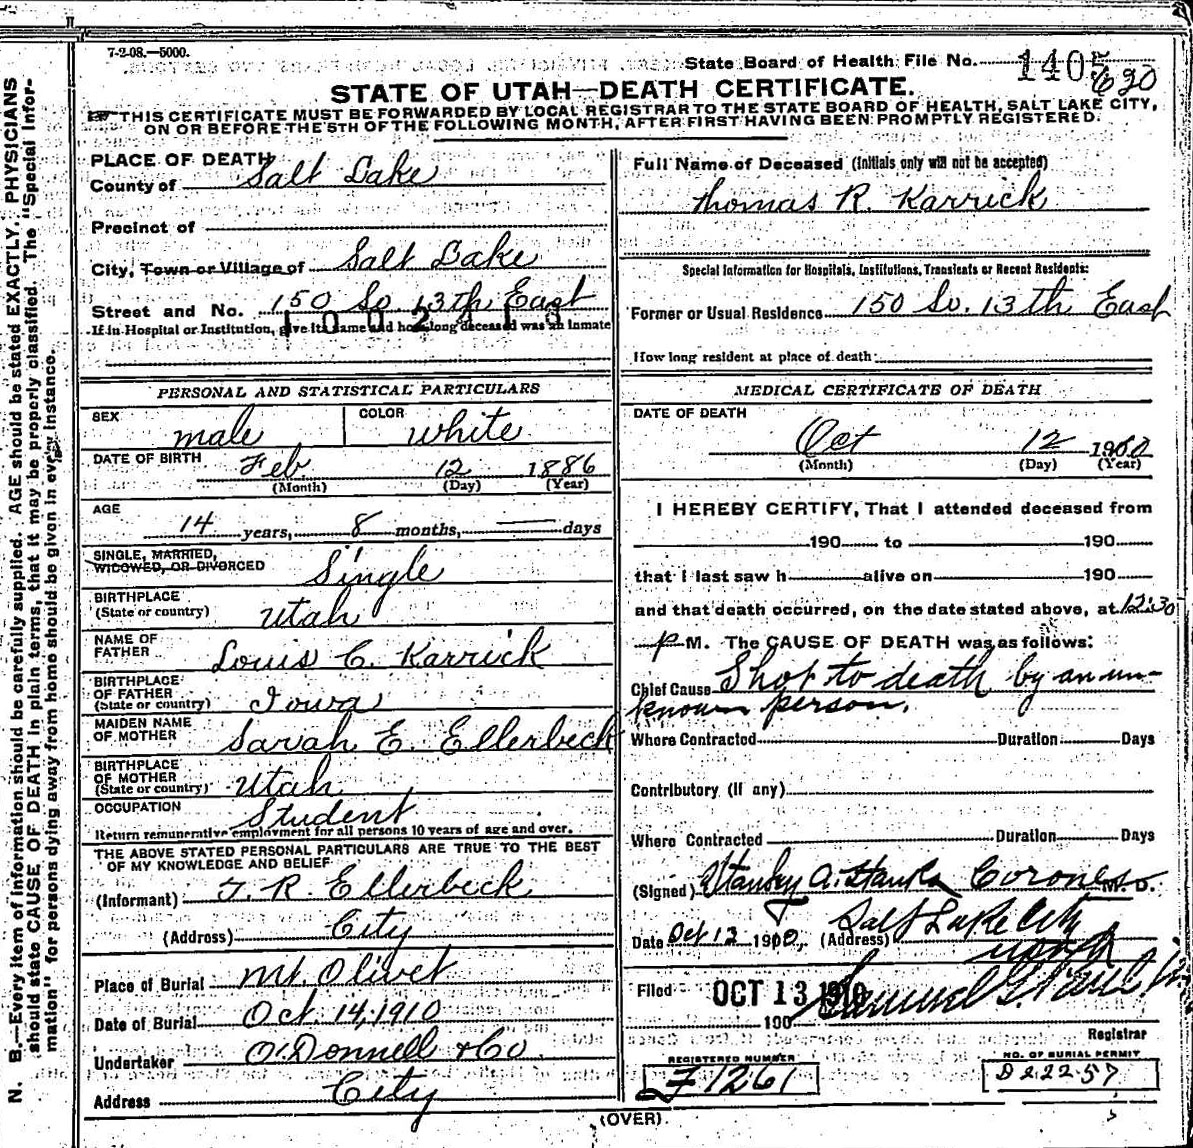 7-2-08.—5000.
State Board of Health File No. 1405
620
STATE OF UTAH—DEATH CERTIFICATE.
THIS CERTIFICATE MUST BE FORWARDED BY LOCAL REGISTRAR TO THE STATE BOARD OF HEALTH, SALT LAKE CITY,
ON OR BEFORE THE 5TH OF THE FOLLOWING MONTH, AFTER FIRST HAVING BEEN PROMPTLY REGISTERED.
PLACE OF DEATH
County of Salt Lake
Precinct of
City, Town or Village of Salt Lake
Street and No. 150 So. 13th East
1002
If in Hospital or Institution, give its name and how long deceased was an inmate
Full Name of Deceased (Initials only will not be accepted)
Thomas R. Karrick
Special Information for Hospitals, Institutions, Transients or Recent Residents:
Former or Usual Residence 150 So. 13th East
How long resident at place of death:
PERSONAL AND STATISTICAL PARTICULARS
SEX male
COLOR white
DATE OF BIRTH Feb 12 1886
(Month) (Day) (Year)
AGE
14 years, 8 months, — days
SINGLE, MARRIED,
WIDOWED, OR DIVORCED Single
BIRTHPLACE
(State or country) Utah
NAME OF
FATHER Louis C. Karrick
BIRTHPLACE
OF FATHER
(State or country) Iowa
MAIDEN NAME
OF MOTHER Sarah E. Ellerbeck
BIRTHPLACE
OF MOTHER
(State or country) Utah
OCCUPATION Student
Return remunerative employment for all persons 10 years of age and over.
THE ABOVE STATED PERSONAL PARTICULARS ARE TRUE TO THE BEST
OF MY KNOWLEDGE AND BELIEF
(Informant) T. R. Ellerbeck
(Address) City
Place of Burial Mt. Olivet
Date of Burial Oct. 14, 1910
Undertaker O'Donnell & Co
Address City
MEDICAL CERTIFICATE OF DEATH
DATE OF DEATH
Oct 12 1910
(Month) (Day) (Year)
I HEREBY CERTIFY, That I attended deceased from
190 to 190
that I last saw h alive on 190
and that death occurred, on the date stated above, at 12:30
p M. The CAUSE OF DEATH was as follows:
Chief Cause Shot to death by an un-
known person.
Where Contracted Duration Days
Contributory (If any)
Where Contracted Duration Days
(Signed) Stanley A. Hanks Coroner M. D.
Date Oct 12 1910, (Address) Salt Lake City
Utah
Filed OCT 13 1910
190
Registrar
REGISTERED NUMBER
1261
NO. OF BURIAL PERMIT
D 2225 7
(OVER)
N. B.—Every item of information should be carefully supplied. AGE should be stated EXACTLY. PHYSICIANS
should state CAUSE OF DEATH in plain terms, that it may be properly classified. The "Special Infor-
mation" for persons dying away from home should be given in every instance.